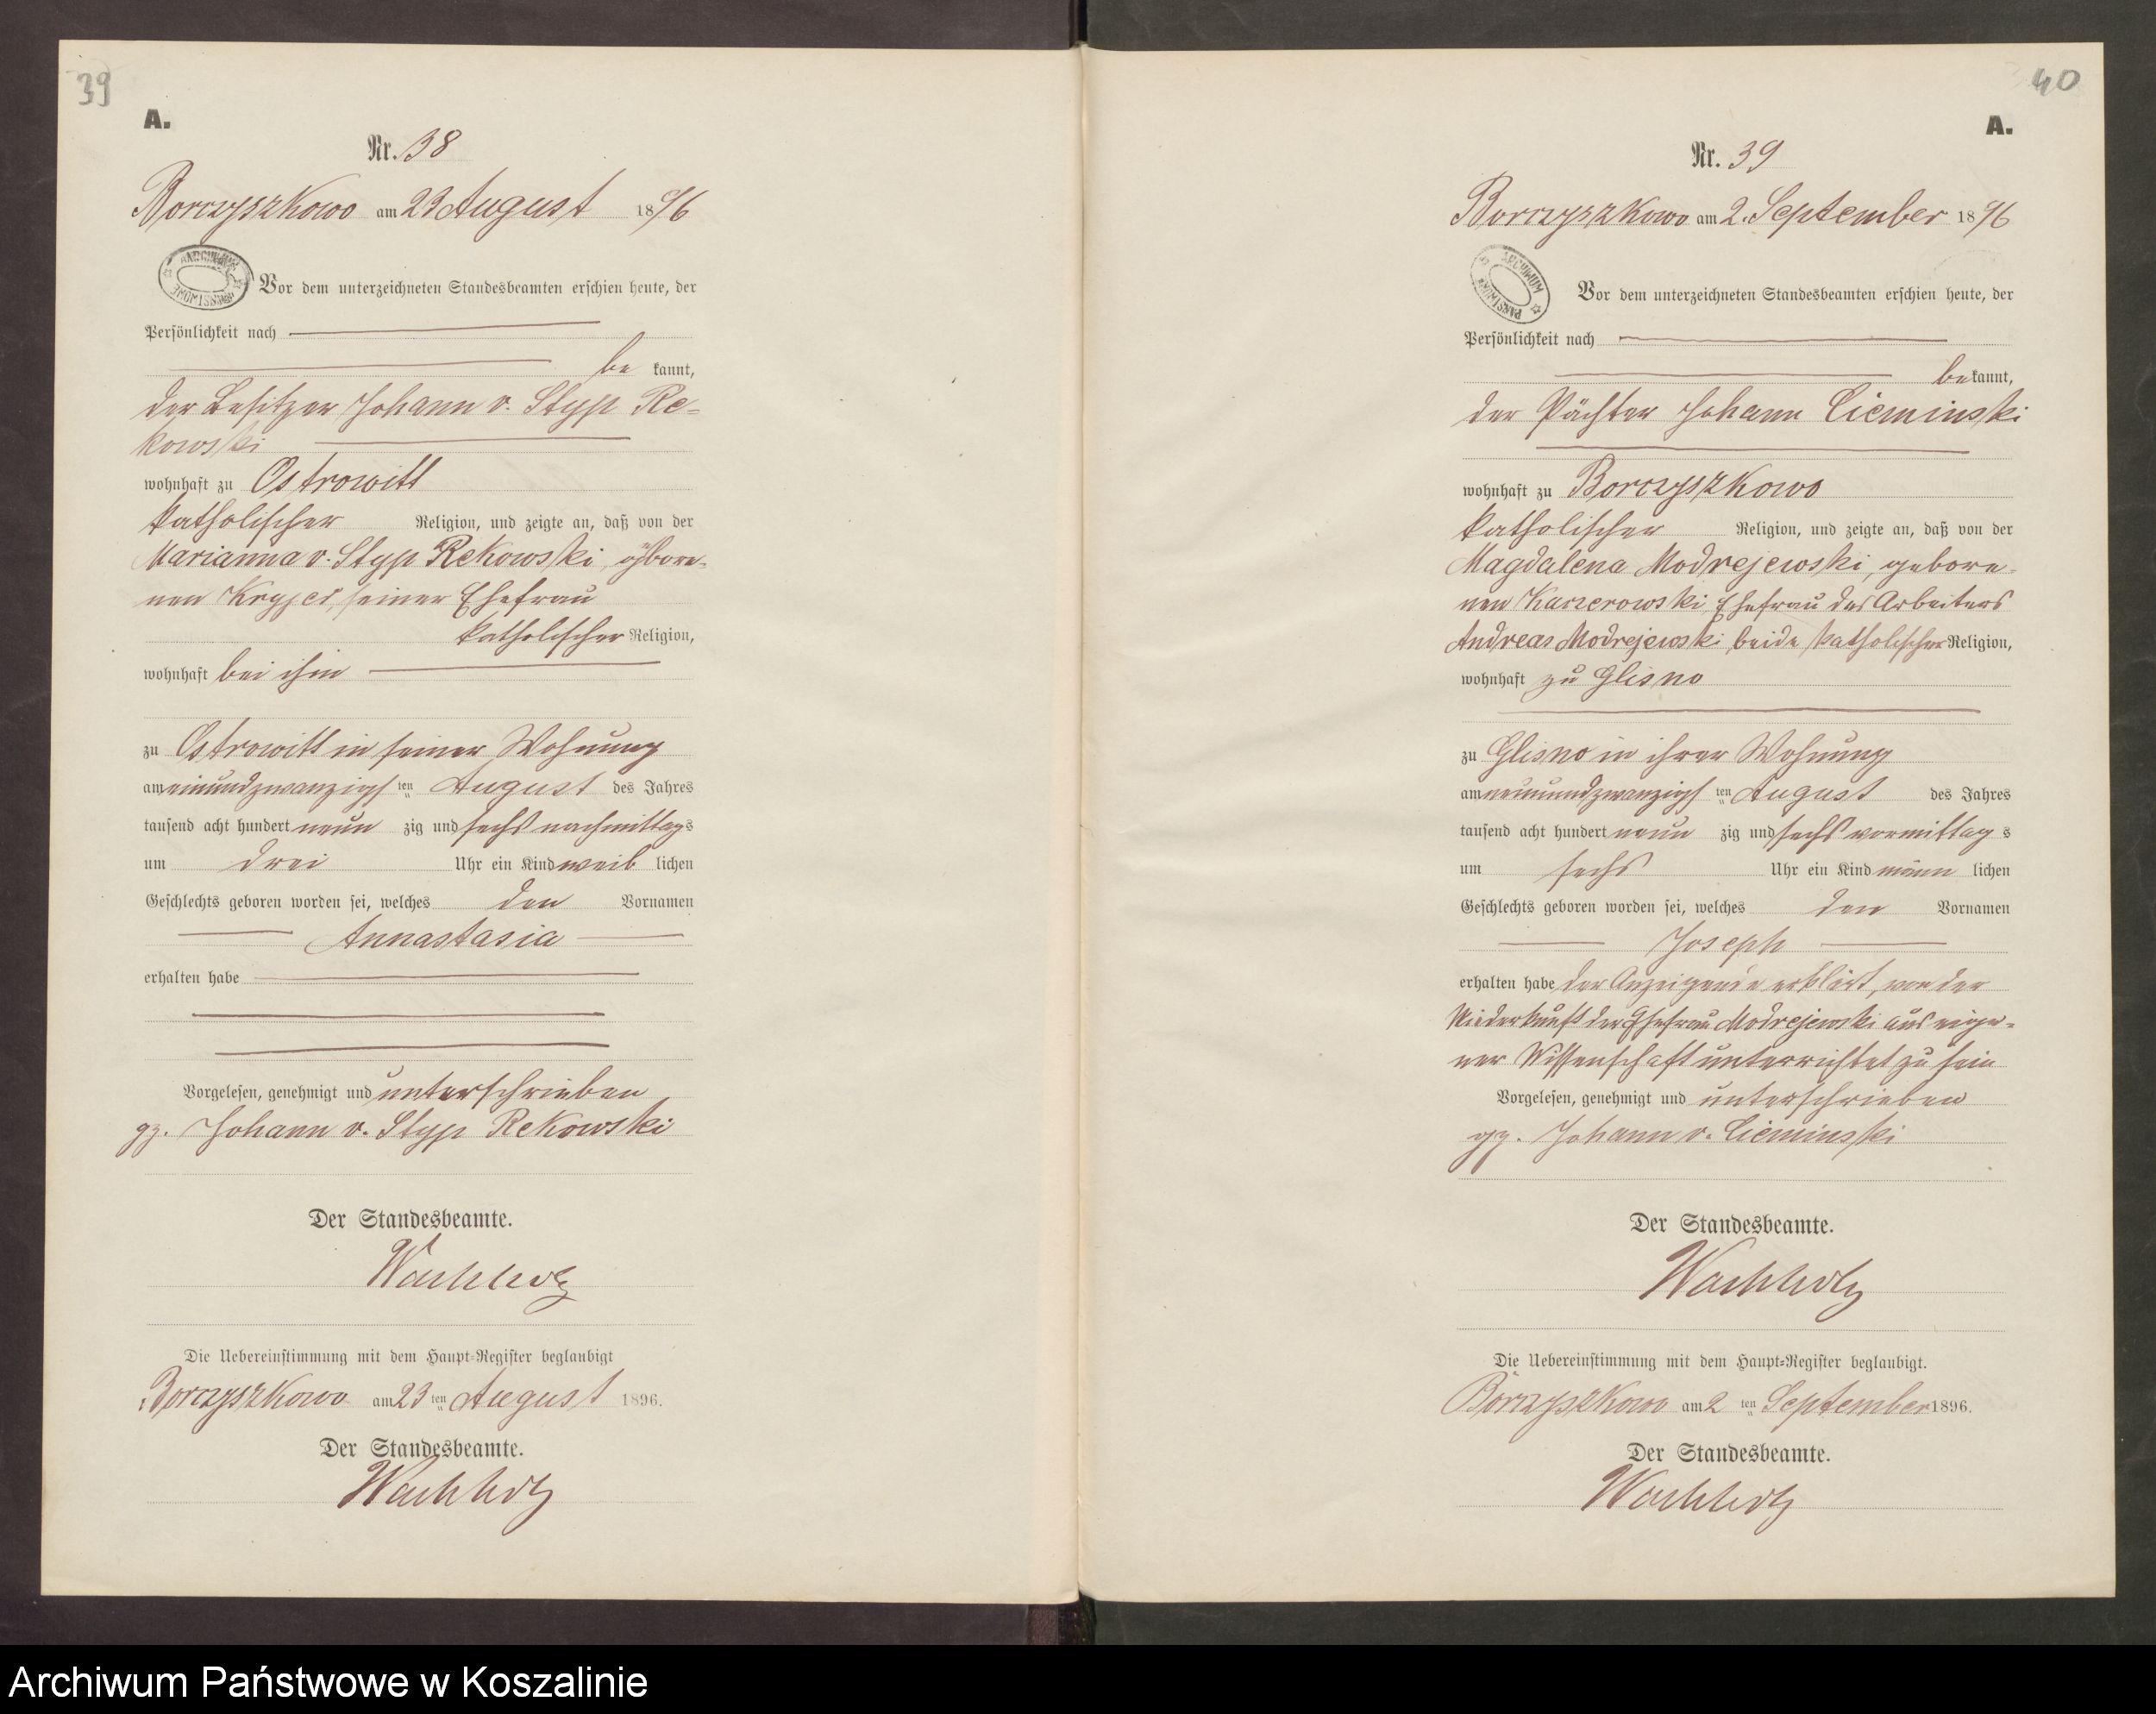 39
A.
Nr. 38
Borczyszkowo am 23 August 1896
Vor dem unterzeichneten Standesbeamten erschien heute, der
Persönlichkeit nach
be kannt,
der Besitzer Johann v. Styp Re-
kowski
wohnhaft zu Ostrowitt
katholischer Religion, und zeigte an, daß von der
Marianna v. Styp Rekowski, gebore-
nen seiner Ehefrau
katholischer Religion,
wohnhaft bei ihm
zu Ostrowitt in seiner Wohnung
am einundzwanzigs ten August des Jahres
tausend acht hundert neun zig und sechs nachmittags
um drei Uhr ein Kind weib lichen
Geschlechts geboren worden sei, welches den Vornamen
Annastasia
erhalten habe
Vorgelesen, genehmigt und unterschrieben
gz. Johann v. Styp Rekowski
Der Standesbeamte.
Wachholz
Die Uebereinstimmung mit dem Haupt-Register beglaubigt
Borczyszkowo am 23 ten August 1896.
Der Standesbeamte.
Wachholz
40
A.
Nr. 39
Borczyszkowo am 2. September 1896
ARCHIWUM PAŃSTWOWE
Vor dem unterzeichneten Standesbeamten erschien heute, der
Persönlichkeit nach
bekannt,
der Pächter Johann Cieminski
wohnhaft zu Borczyszkowo
katholischer Religion, und zeigte an, daß von der
Magdalena Modrejewski, gebore-
nen Karzerowski Ehefrau des Arbeiters
Andreas Modrejewski beide katholischer Religion,
wohnhaft zu Glisno
zu Glisno in ihrer Wohnung
am neunundzwanzigs ten August des Jahres
tausend acht hundert neun zig und sechs vormittag s
um sechs Uhr ein Kind männ lichen
Geschlechts geboren worden sei, welches den Vornamen
Joseph
erhalten habe der Anzeigende erklärt, von der
Niederkunft der Ehefrau Modrejewski aus eige-
ner Wissenschaft unterrichtet zu sein
Vorgelesen, genehmigt und unterschrieben
gz. Johann v. Cieminski
Der Standesbeamte.
Wachholz
Die Uebereinstimmung mit dem Haupt-Register beglaubigt.
Borczyszkowo am 2 ten September 1896.
Der Standesbeamte.
Wachholz
Archiwum Państwowe w Koszalinie